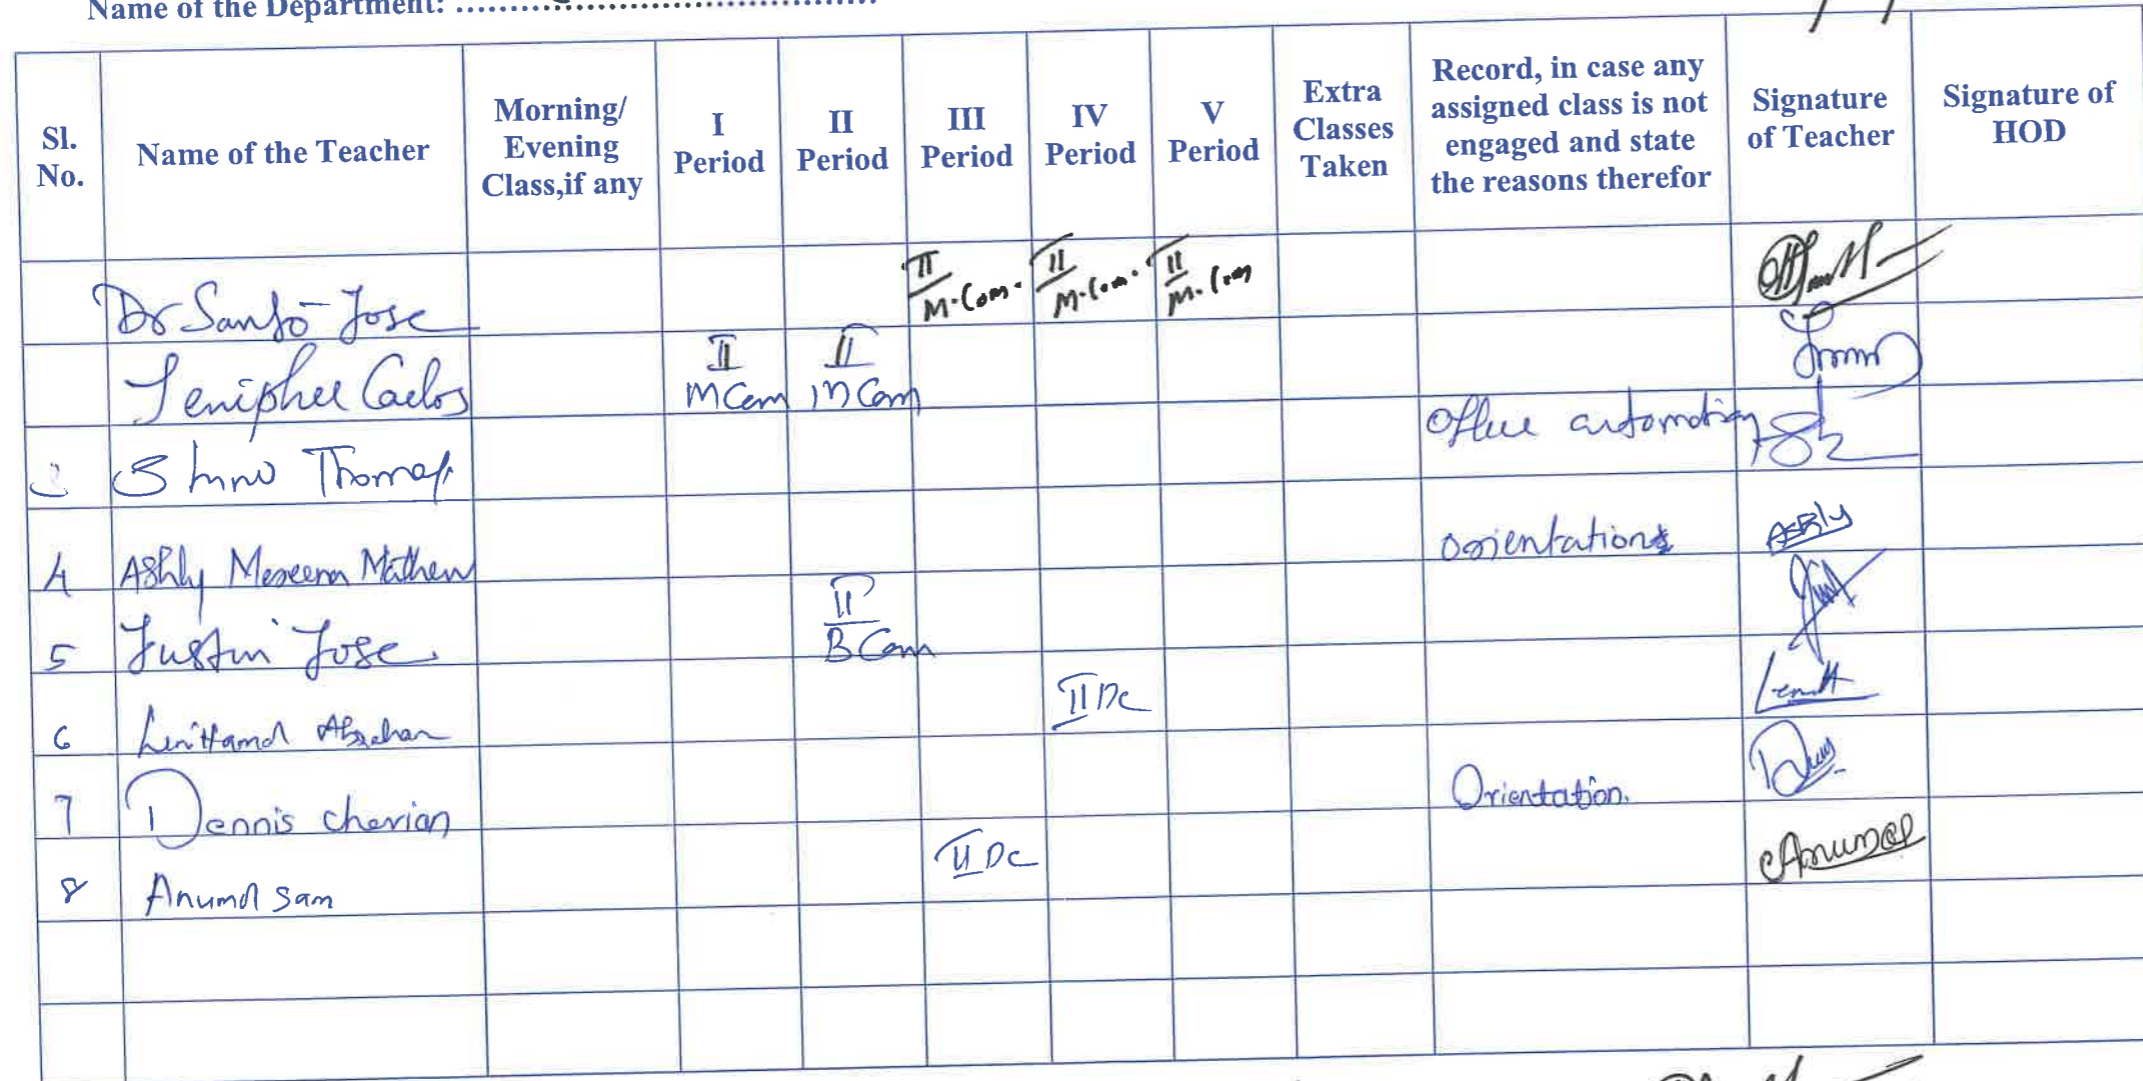 Name of the Department:
Sl. No. Name of the Teacher Morning/ Evening Class,if any I Period II Period III Period IV Period V Period Extra Classes Taken Record, in case any assigned class is not engaged and state the reasons therefor Signature of Teacher Signature of HOD
Dr Sanjo Jose II M.Com. II M.Com. II M.Com
Jenipher Carlos II MCom II MCom
3 Shino Thomas Office automation
4 Ashly Mereena Mathew Orientation
5 Justin Jose II BCom
6 Linittamol Abraham II Dc
7 Dennis cherian Orientation.
8 Anumol Sam II Dc Anumol